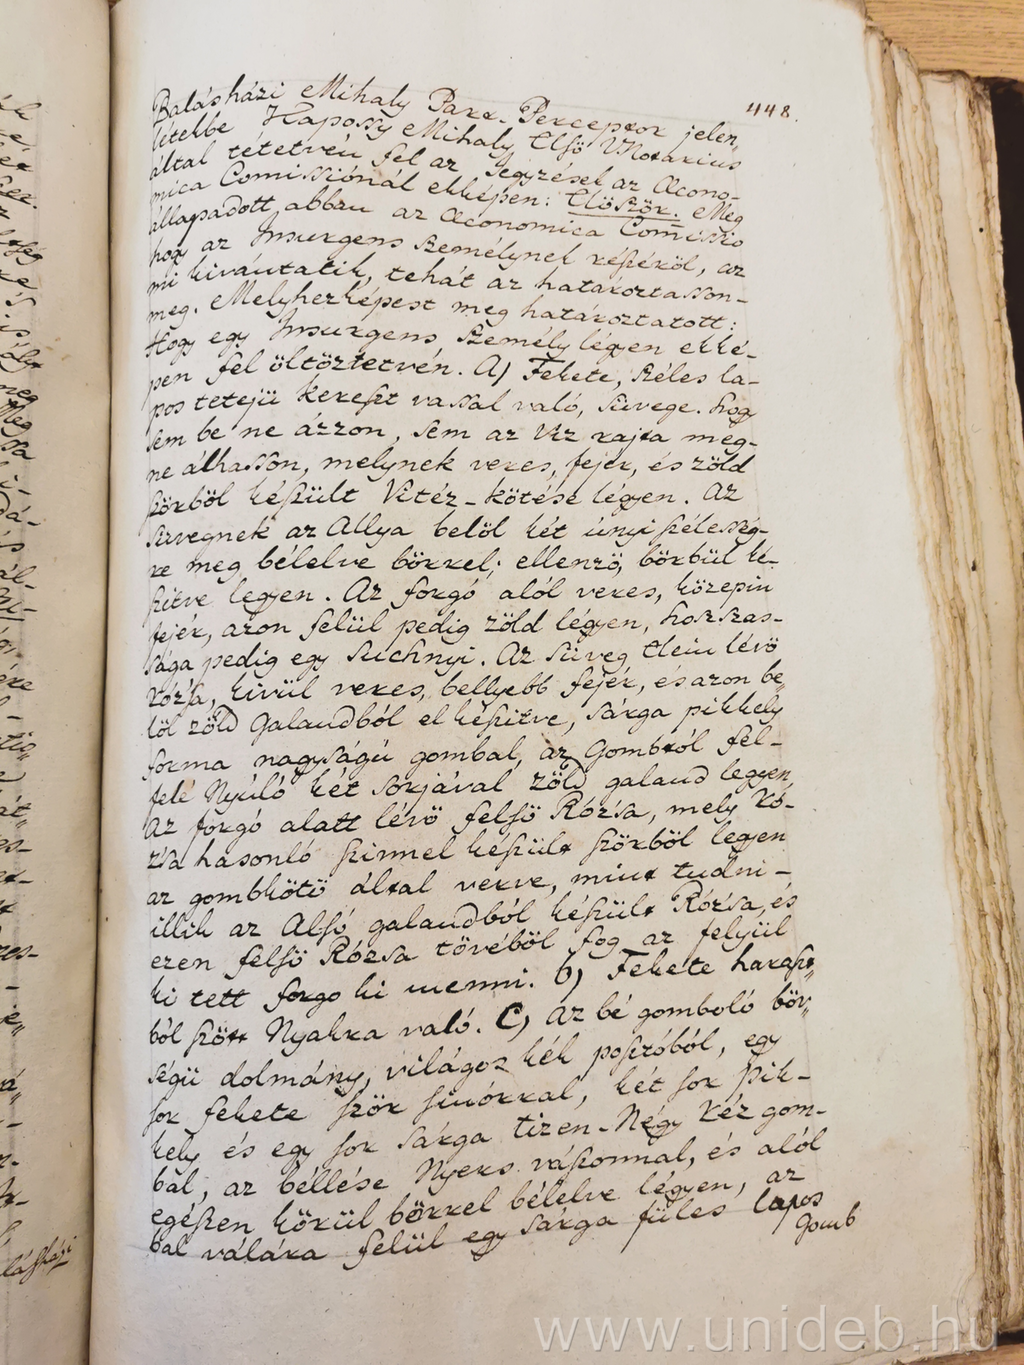 448.
Balásházi Mihaly Parx. Perceptor jelen,
létebbe Kapossy Mihaly Elsö VNotarius
által tétetvén fel az Jegyzések az Œcono-
mica Comissiónál ekképen: Elöször. Meg
állapadott abban az Œconomica Com̅issio
hogy az Insurgens személynek részéröl, az
mi kivántatik, tehát az határoztasson-
meg. Melyherképest meg határoztatott:
Hogy egy Insurgens személy légyen ekké-
pen fel öltöztetvén. A) Fekete, széles la-
pos tetejü kereszt vassal való, süvege. hog
sem be ne ázzon, sem az viz rajta meg-
ne álhasson, melynek veres, fejér, és zöld
szörböl készült Vitéz-kötése légyen. Az
süvegnek az Allya belöl két újnyi szélesség-
re meg bélelve börrel; ellenzö, börbül ké-
szitve legyen. Az forgó alól veres, közepin
fejér, azon felül pedig zöld légyen, hoszszas-
sága pedig egy Suchnyi. Az süveg Elein lévö
Rózsa, kivül veres, bellyebb fejér, és azon be„
löl zöld Galandból el készitve, sárga pikkely
forma nagyságú gombal, az Gombtól fel-
felé Nyúló két sorjával zöld galand legyen,
Az forgó alatt lévö felsö Rózsa, mely Ró-
zsa hasonló szinnel készült szörböl legyen
az gombkötö által verve, mint tudni-
illik az Alsó galandból készült Rózsa, és
ezen felsö Rózsa tövéböl fog az felyül
ki tett forgo ki menni. b) Fekete haraszt„
ból szött Nyakra való. C) az bé gomboló böv„
ségü dolmány, világos kék posztóból, egy
sor fekete ször sinórral, két sor pik-
kely és egy sor sárga tizen-Négy Réz gom-
bal, az béllése Nyers vászonnal, és alól
egészen körül börrel bélelve légyen, az
bal válára felül egy sárga füles lapos
Gomb
www.unideb.hu